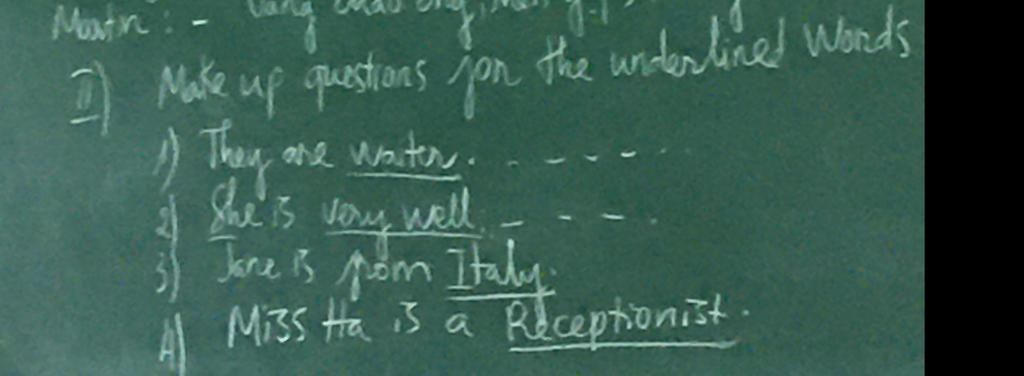 II) Make up questions for the underlined Words
1) They are waiter. . . - - - . .
2) She is very well. - - - .
3) Jane is from Italy.
4) Miss Ha is a Receptionist.